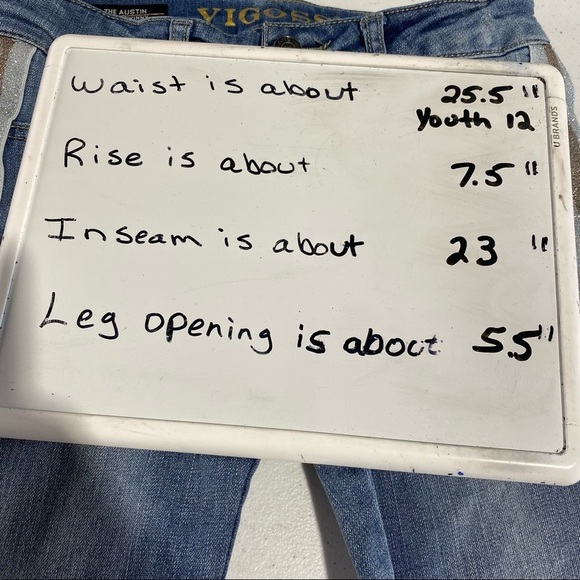 THE AUSTIN
VIGOSS
Waist is about 25.5"
Youth 12
U BRANDS
Rise is about 7.5"
Inseam is about 23"
Leg opening is about 5.5"